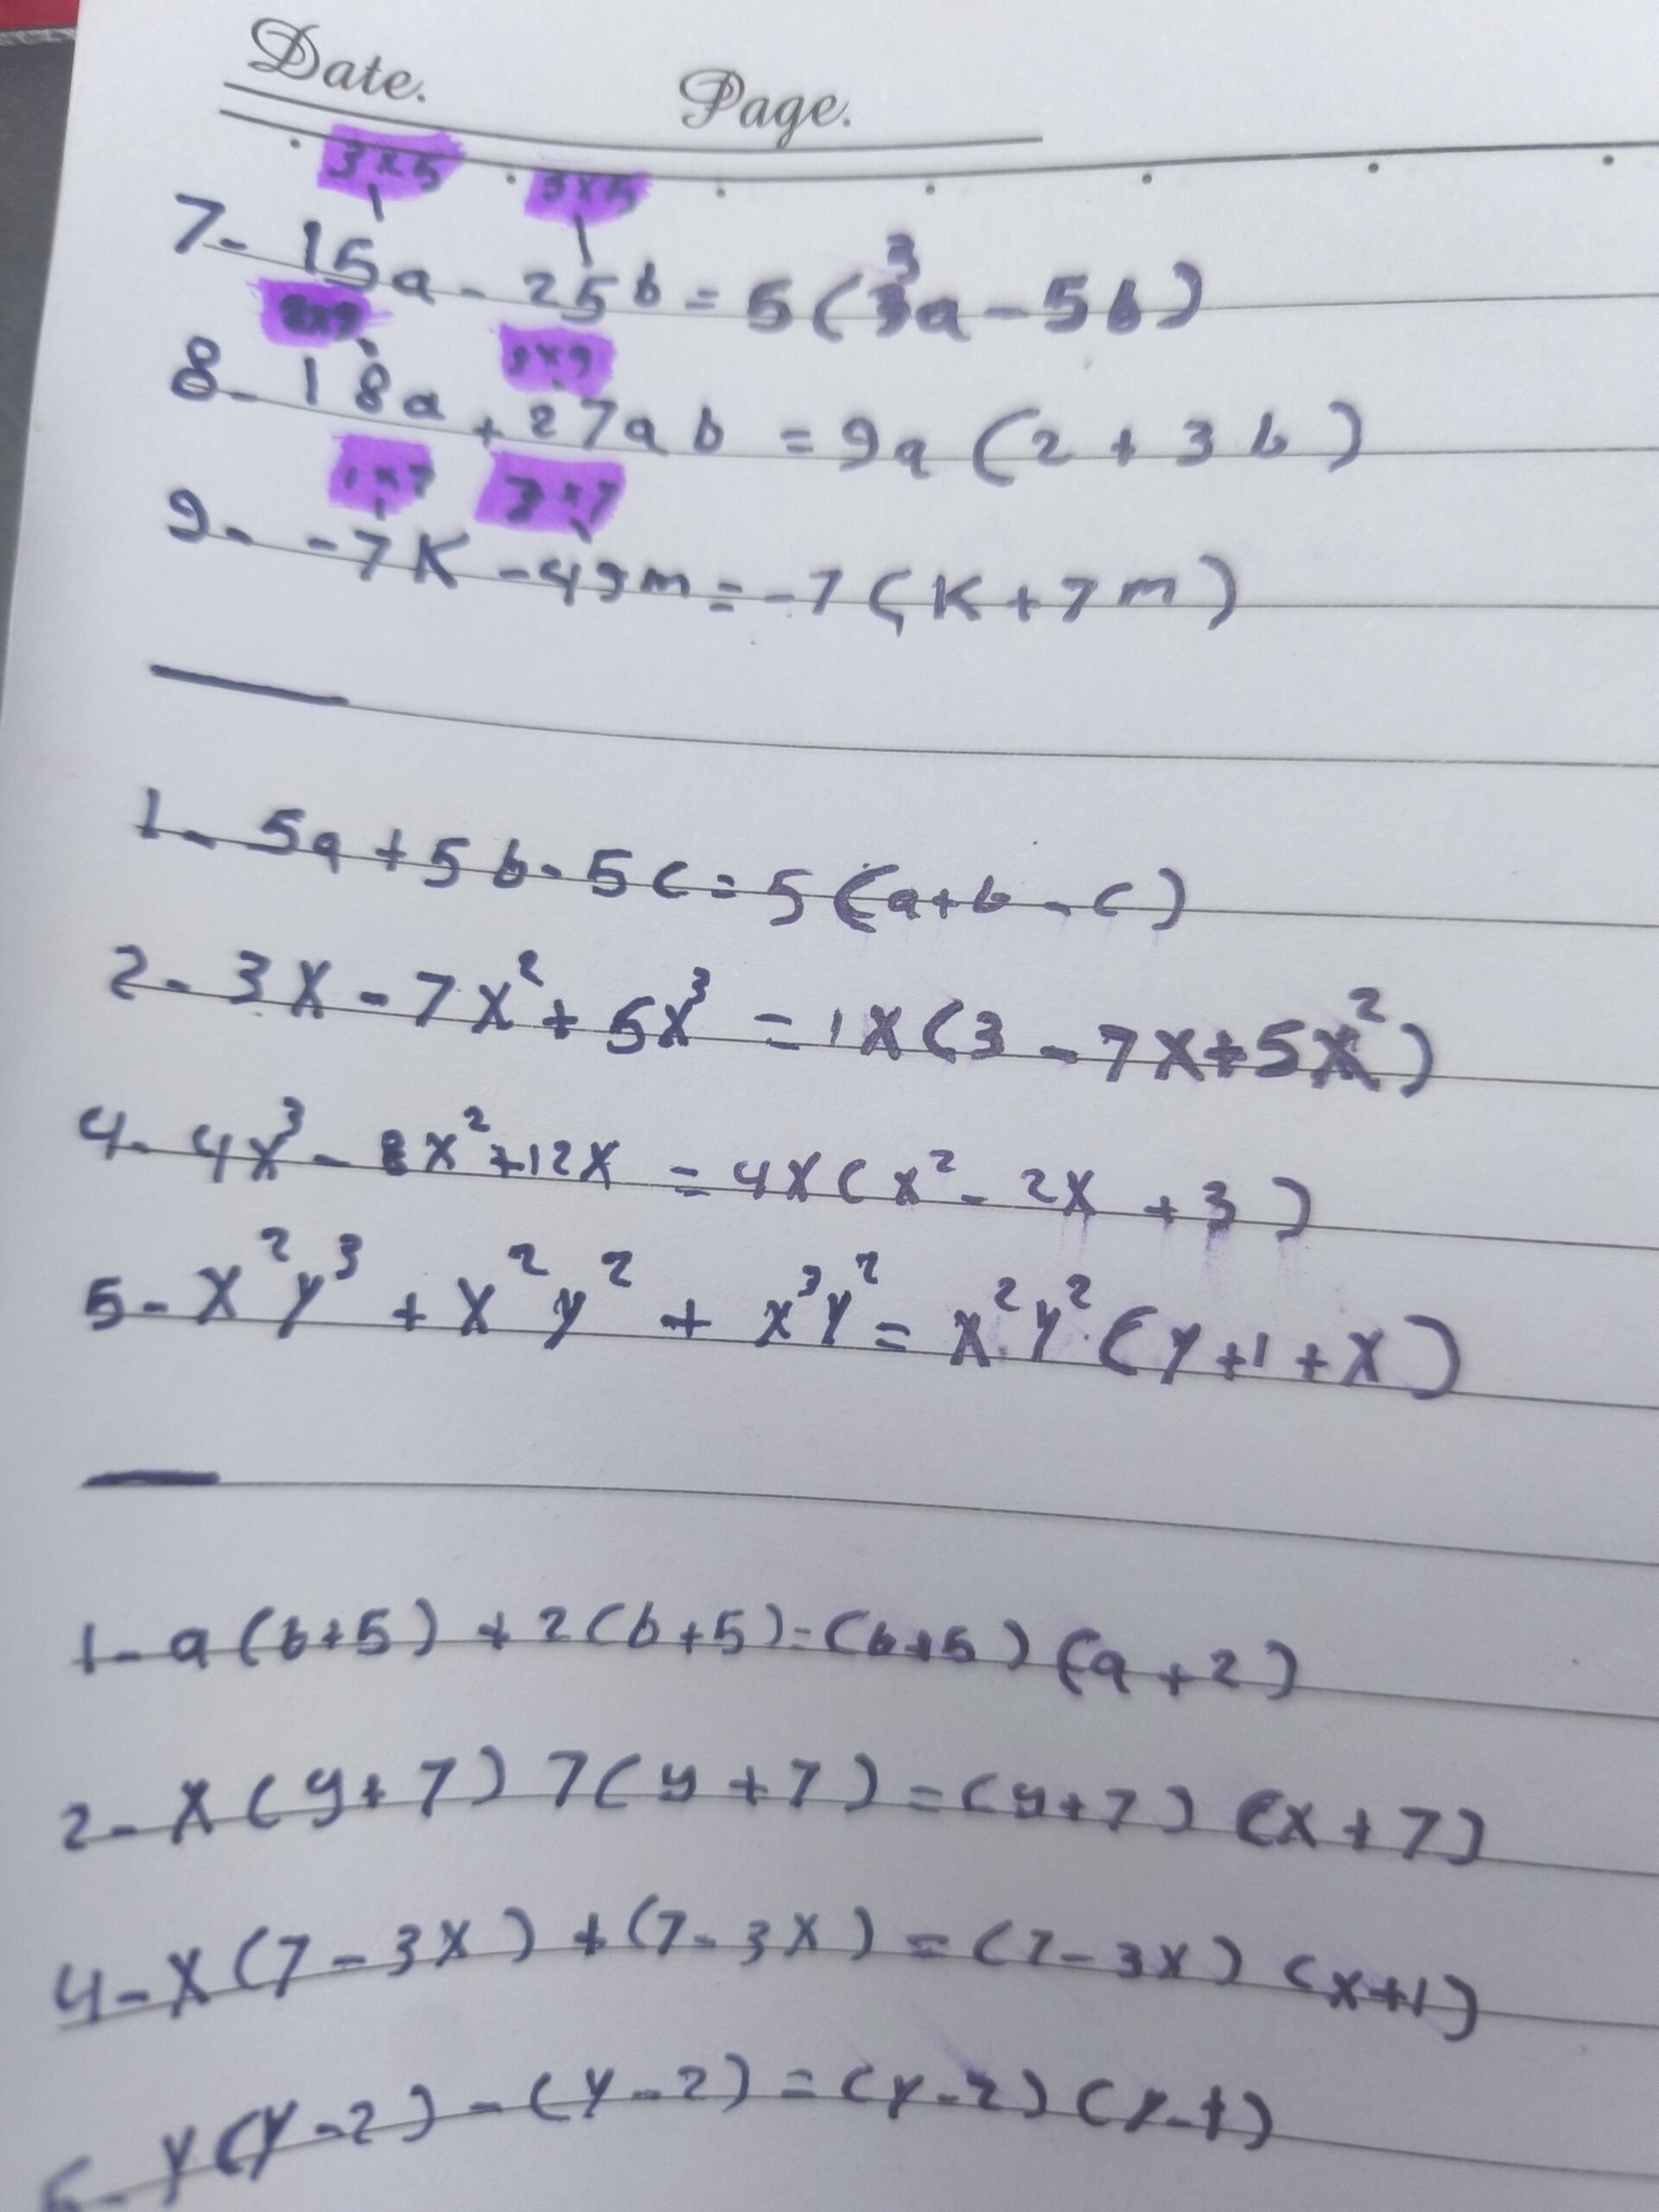 Date. Page.
3×5 3×5
7- 15a - 25b = 5(3a - 5b)
2×9 3×9
8- 18a + 27ab = 9a(2 + 3b)
1×7 7×7
9- -7K - 49m = -7(K + 7m)
1- 5a + 5b - 5c = 5(a+b - c)
2- 3X - 7X² + 5X³ = 1X(3 - 7X + 5X²)
4- 4X³ - 8X² + 12X = 4X(X² - 2X + 3)
5- X²Y³ + X²Y² + X³Y² = X²Y²(Y + 1 + X)
1- a(b+5) + 2(b+5) = (b+5)(a+2)
2- X(y+7) 7(y+7) = (y+7)(X+7)
4- X(7-3X) + (7-3X) = (7-3X)(X+1)
5- Y(Y-2) - (Y-2) = (Y-2)(Y-1)